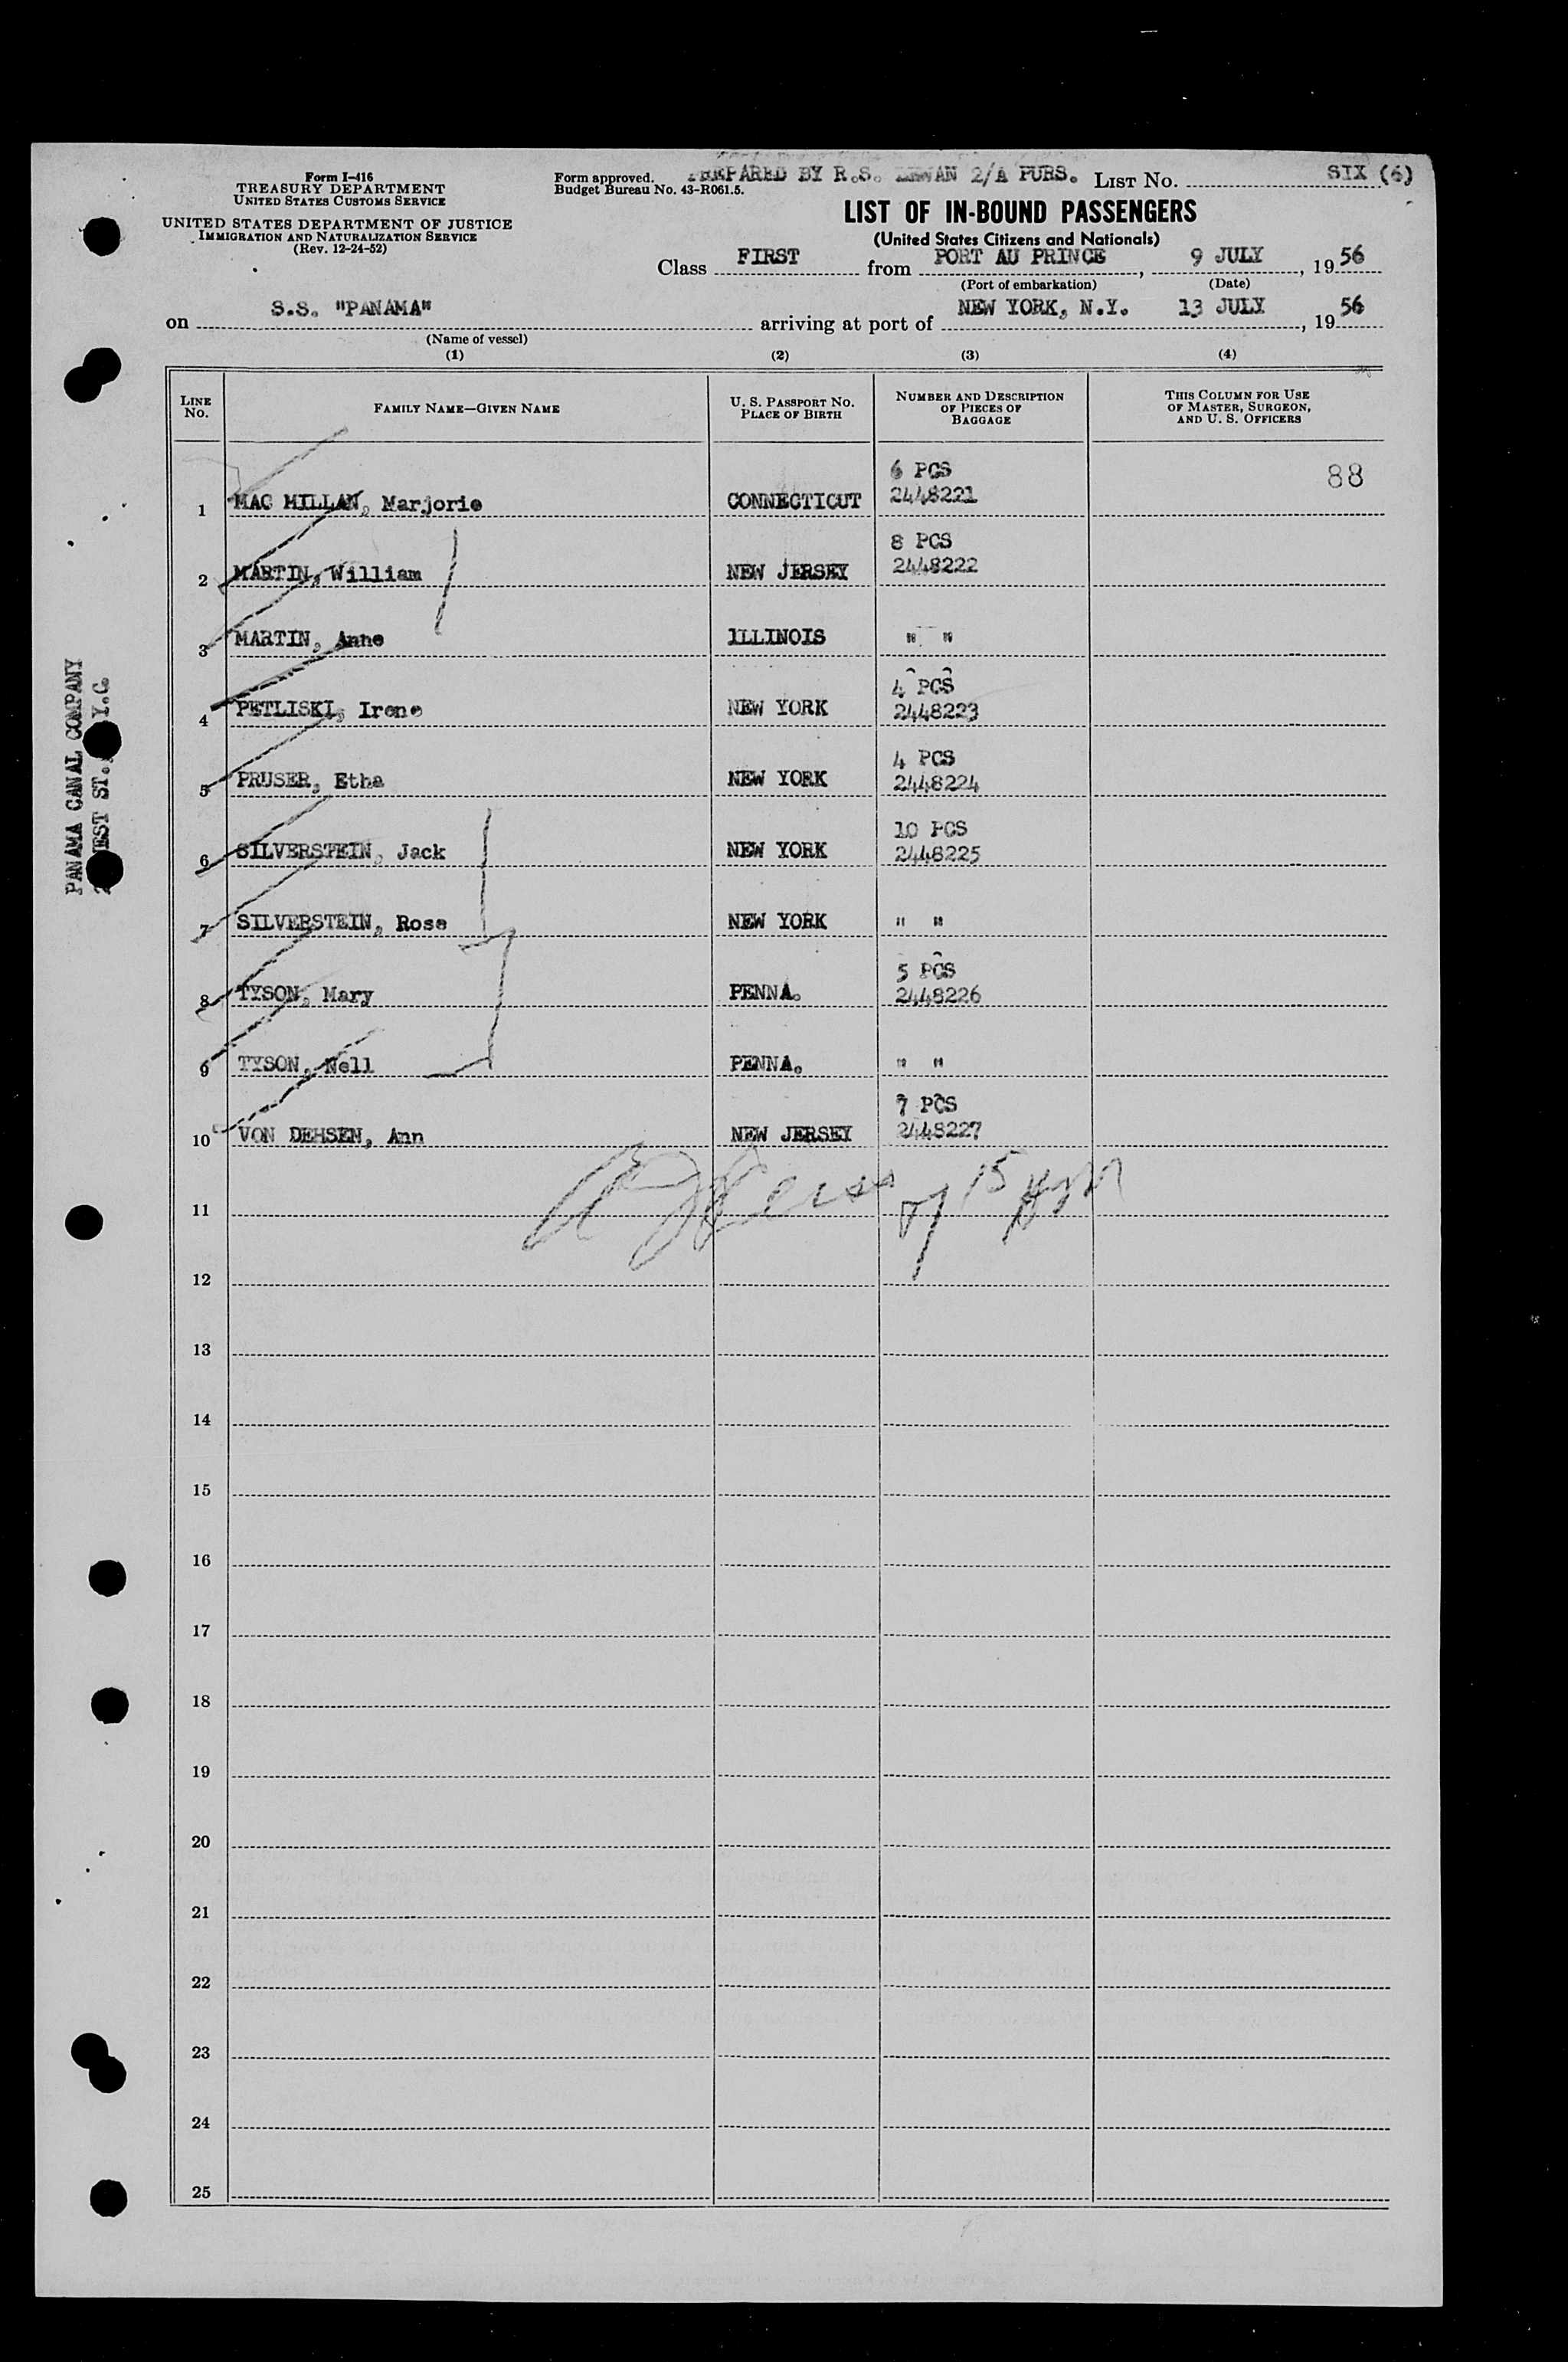 Form I-416
TREASURY DEPARTMENT
UNITED STATES CUSTOMS SERVICE
UNITED STATES DEPARTMENT OF JUSTICE
IMMIGRATION AND NATURALIZATION SERVICE
(Rev. 12-24-52)
Form approved.
Budget Bureau No. 43-R061.5.
PREPARED BY R.S. 2/A PURS.
LIST No. SIX (6)
LIST OF IN-BOUND PASSENGERS
(United States Citizens and Nationals)
Class FIRST from PORT AU PRINCE, 9 JULY, 1956
(Port of embarkation) (Date)
on S.S. "PANAMA" arriving at port of NEW YORK, N.Y. 13 JULY, 1956
(Name of vessel)
(1) (2) (3) (4)
LINE NO.
FAMILY NAME—GIVEN NAME
U. S. PASSPORT NO.
PLACE OF BIRTH
NUMBER AND DESCRIPTION
OF PIECES OF
BAGGAGE
THIS COLUMN FOR USE
OF MASTER, SURGEON,
AND U. S. OFFICERS
6 PCS 88
1 MAC MILLAN, Marjorie CONNECTICUT 2448221
8 PCS
2 MARTIN, William NEW JERSEY 2448222
3 MARTIN, Anne ILLINOIS " "
4 PCS
4 PETLISKI, Irene NEW YORK 2448223
4 PCS
5 PRUSER, Etha NEW YORK 2448224
10 PCS
6 SILVERSTEIN, Jack NEW YORK 2448225
7 SILVERSTEIN, Rose NEW YORK " "
5 PCS
8 TYSON, Mary PENNA. 2448226
9 TYSON, Nell PENNA. " "
7 PCS
10 VON DEHSEN, Ann NEW JERSEY 2448227
11
12
13
14
15
16
17
18
19
20
21
22
23
24
25
PANAMA CANAL COMPANY
ST.